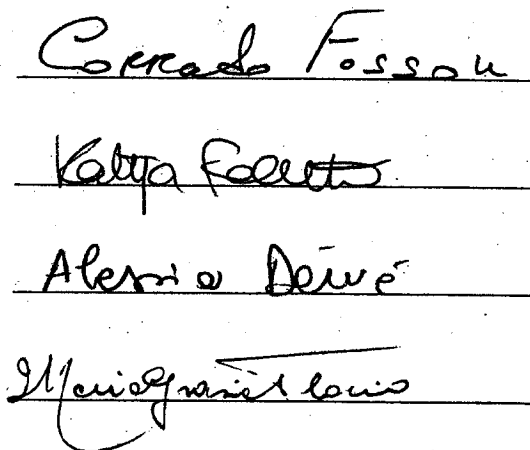 Corrado Fosson
Katya Foletto
Alessia Démé
Maria Grazia